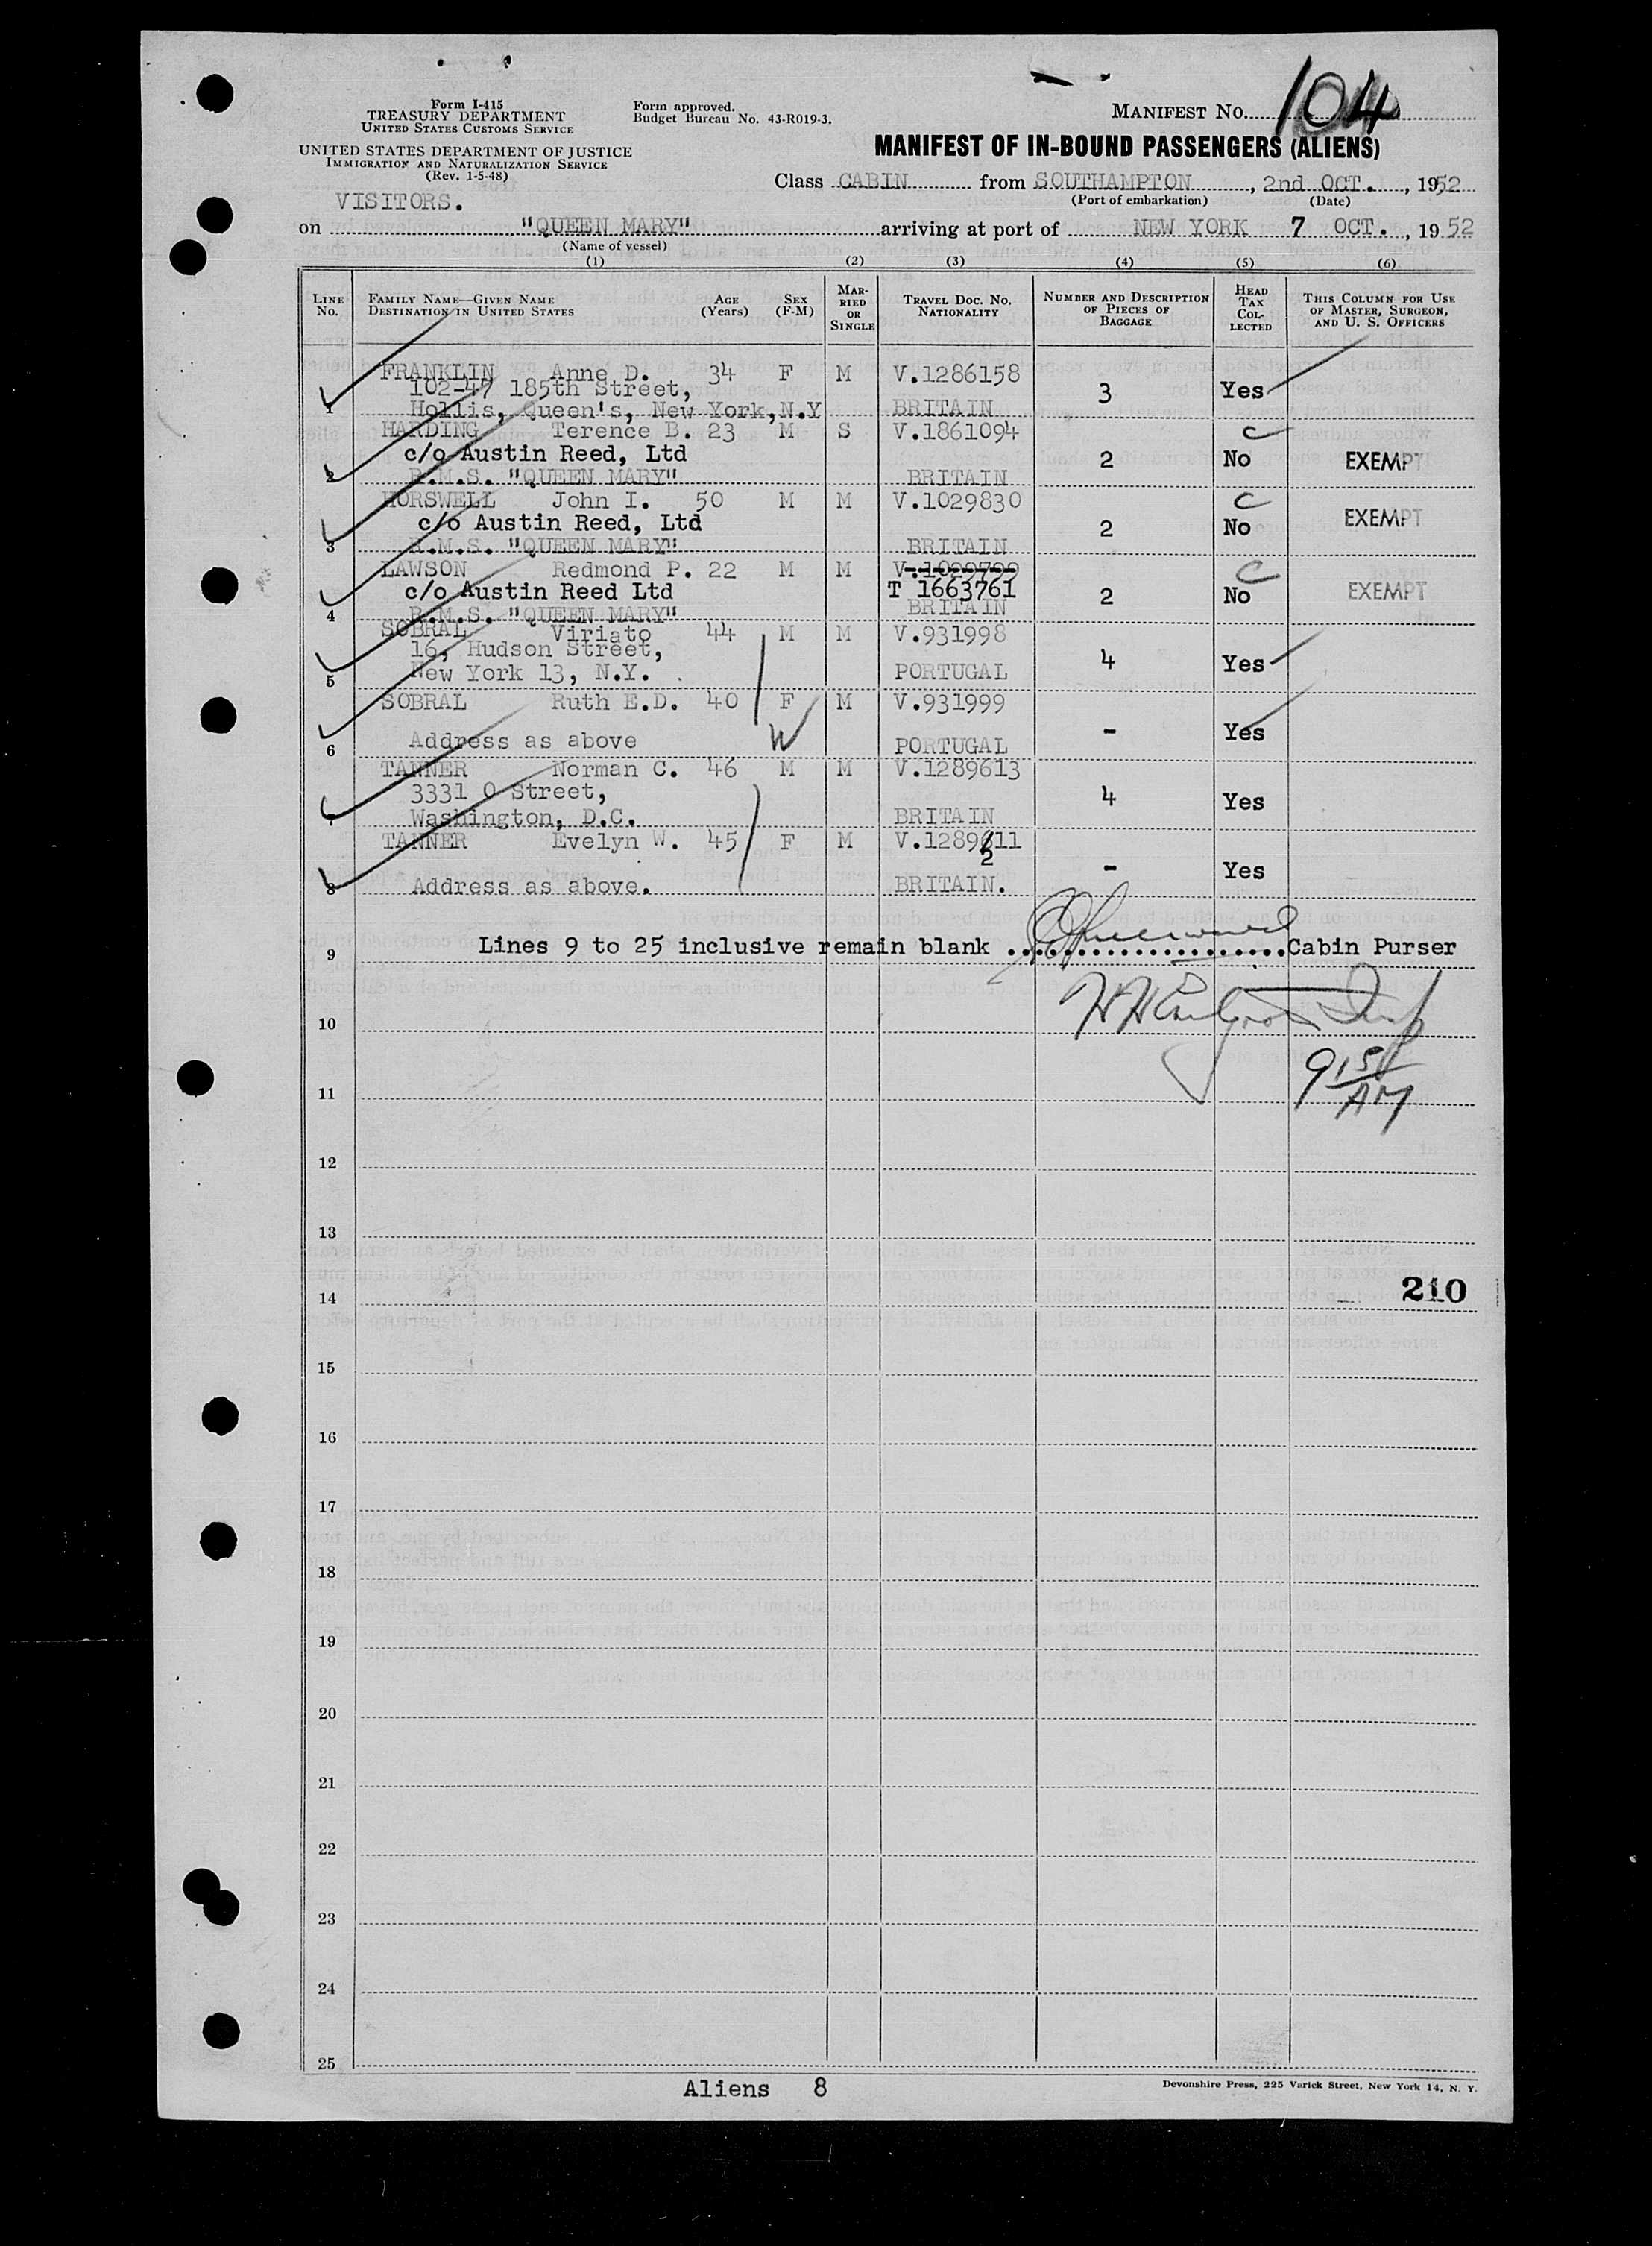 Form I-415
TREASURY DEPARTMENT
UNITED STATES CUSTOMS SERVICE
UNITED STATES DEPARTMENT OF JUSTICE
IMMIGRATION AND NATURALIZATION SERVICE
(Rev. 1-5-48)
Form approved.
Budget Bureau No. 43-R019-3.
MANIFEST No. 104
MANIFEST OF IN-BOUND PASSENGERS (ALIENS)
Class CABIN from SOUTHAMPTON, 2nd OCT., 1952
(Port of embarkation) (Date)
VISITORS.
on "QUEEN MARY" arriving at port of NEW YORK 7 OCT., 1952
(Name of vessel)
(1) (2) (3) (4) (5) (6)
LINE No. FAMILY NAME—GIVEN NAME DESTINATION IN UNITED STATES AGE (Years) SEX (F-M) MARRIED OR SINGLE TRAVEL DOC. NO. NATIONALITY NUMBER AND DESCRIPTION OF PIECES OF BAGGAGE HEAD TAX COLLECTED THIS COLUMN FOR USE OF MASTER, SURGEON, AND U. S. OFFICERS
FRANKLIN Anne D. 34 F M V.1286158
102-47 185th Street, 3 Yes
1 Hollis, Queen's, New York, N.Y BRITAIN
HARDING Terence B. 23 M S V.1861094 C
c/o Austin Reed, Ltd 2 No EXEMPT
2 R.M.S. "QUEEN MARY" BRITAIN
HORSWELL John I. 50 M M V.1029830 C
c/o Austin Reed, Ltd 2 No EXEMPT
3 R.M.S. "QUEEN MARY" BRITAIN
LAWSON Redmond P. 22 M M V.1029799 C
c/o Austin Reed Ltd T 1663761 2 No EXEMPT
4 R.M.S. "QUEEN MARY" BRITAIN
SOBRAL Viriato 44 M M V.931998
16, Hudson Street, 4 Yes
5 New York 13, N.Y. PORTUGAL
SOBRAL Ruth E.D. 40 F M V.931999
W - Yes
6 Address as above PORTUGAL
TANNER Norman C. 46 M M V.1289613
3331 O Street, 4 Yes
7 Washington, D.C. BRITAIN
TANNER Evelyn W. 45 F M V.1289611
2 - Yes
8 Address as above. BRITAIN.
9 Lines 9 to 25 inclusive remain blank ....................Cabin Purser
10
9 15
AM
11
12
13
14 210
15
16
17
18
19
20
21
22
23
24
25
Aliens 8
Devonshire Press, 225 Varick Street, New York 14, N. Y.